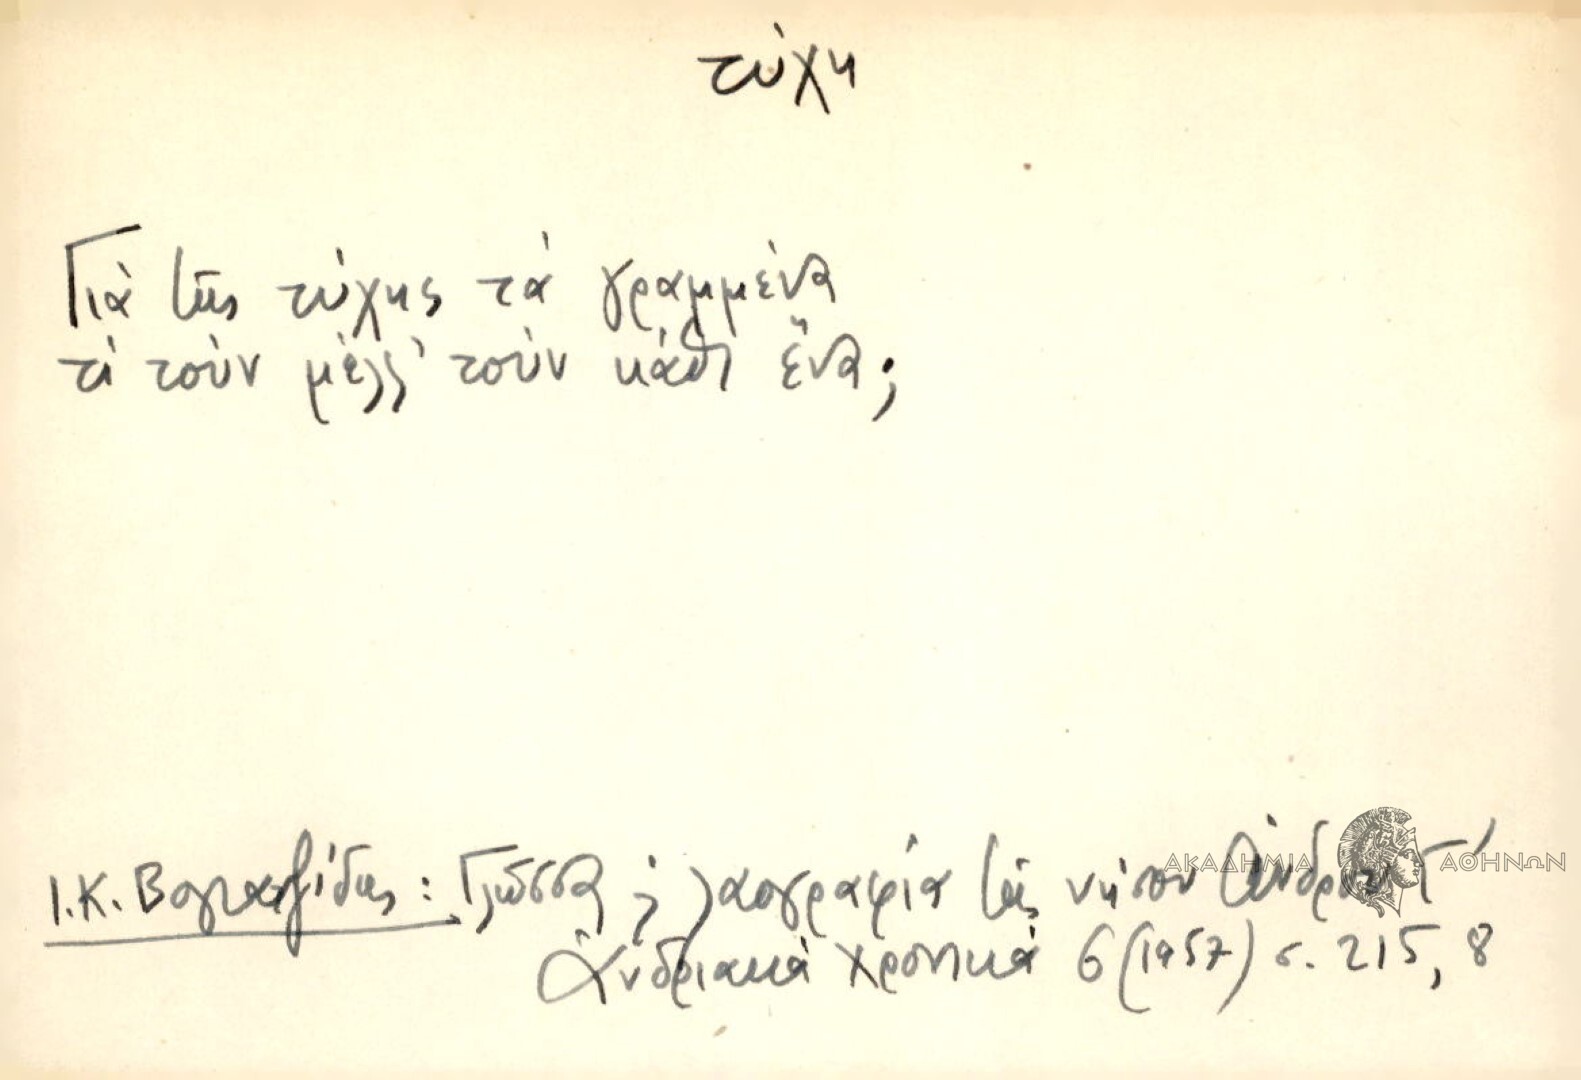 τύχη
Γιὰ τῆς τύχης τὰ γραμμένα
τί τοὺν μέλλ' τοὺν κάθ' ἕνα;
Ι.Κ. Βογιατζίδης: Γλῶσσα κ λαογραφία τῆς νήσου Ἄνδρου Γ'
Ἀνδριακὰ Χρονικὰ 6 (1957) σ. 215, 8
ΑΚΑΔΗΜΙΑ ΑΘΗΝΩΝ